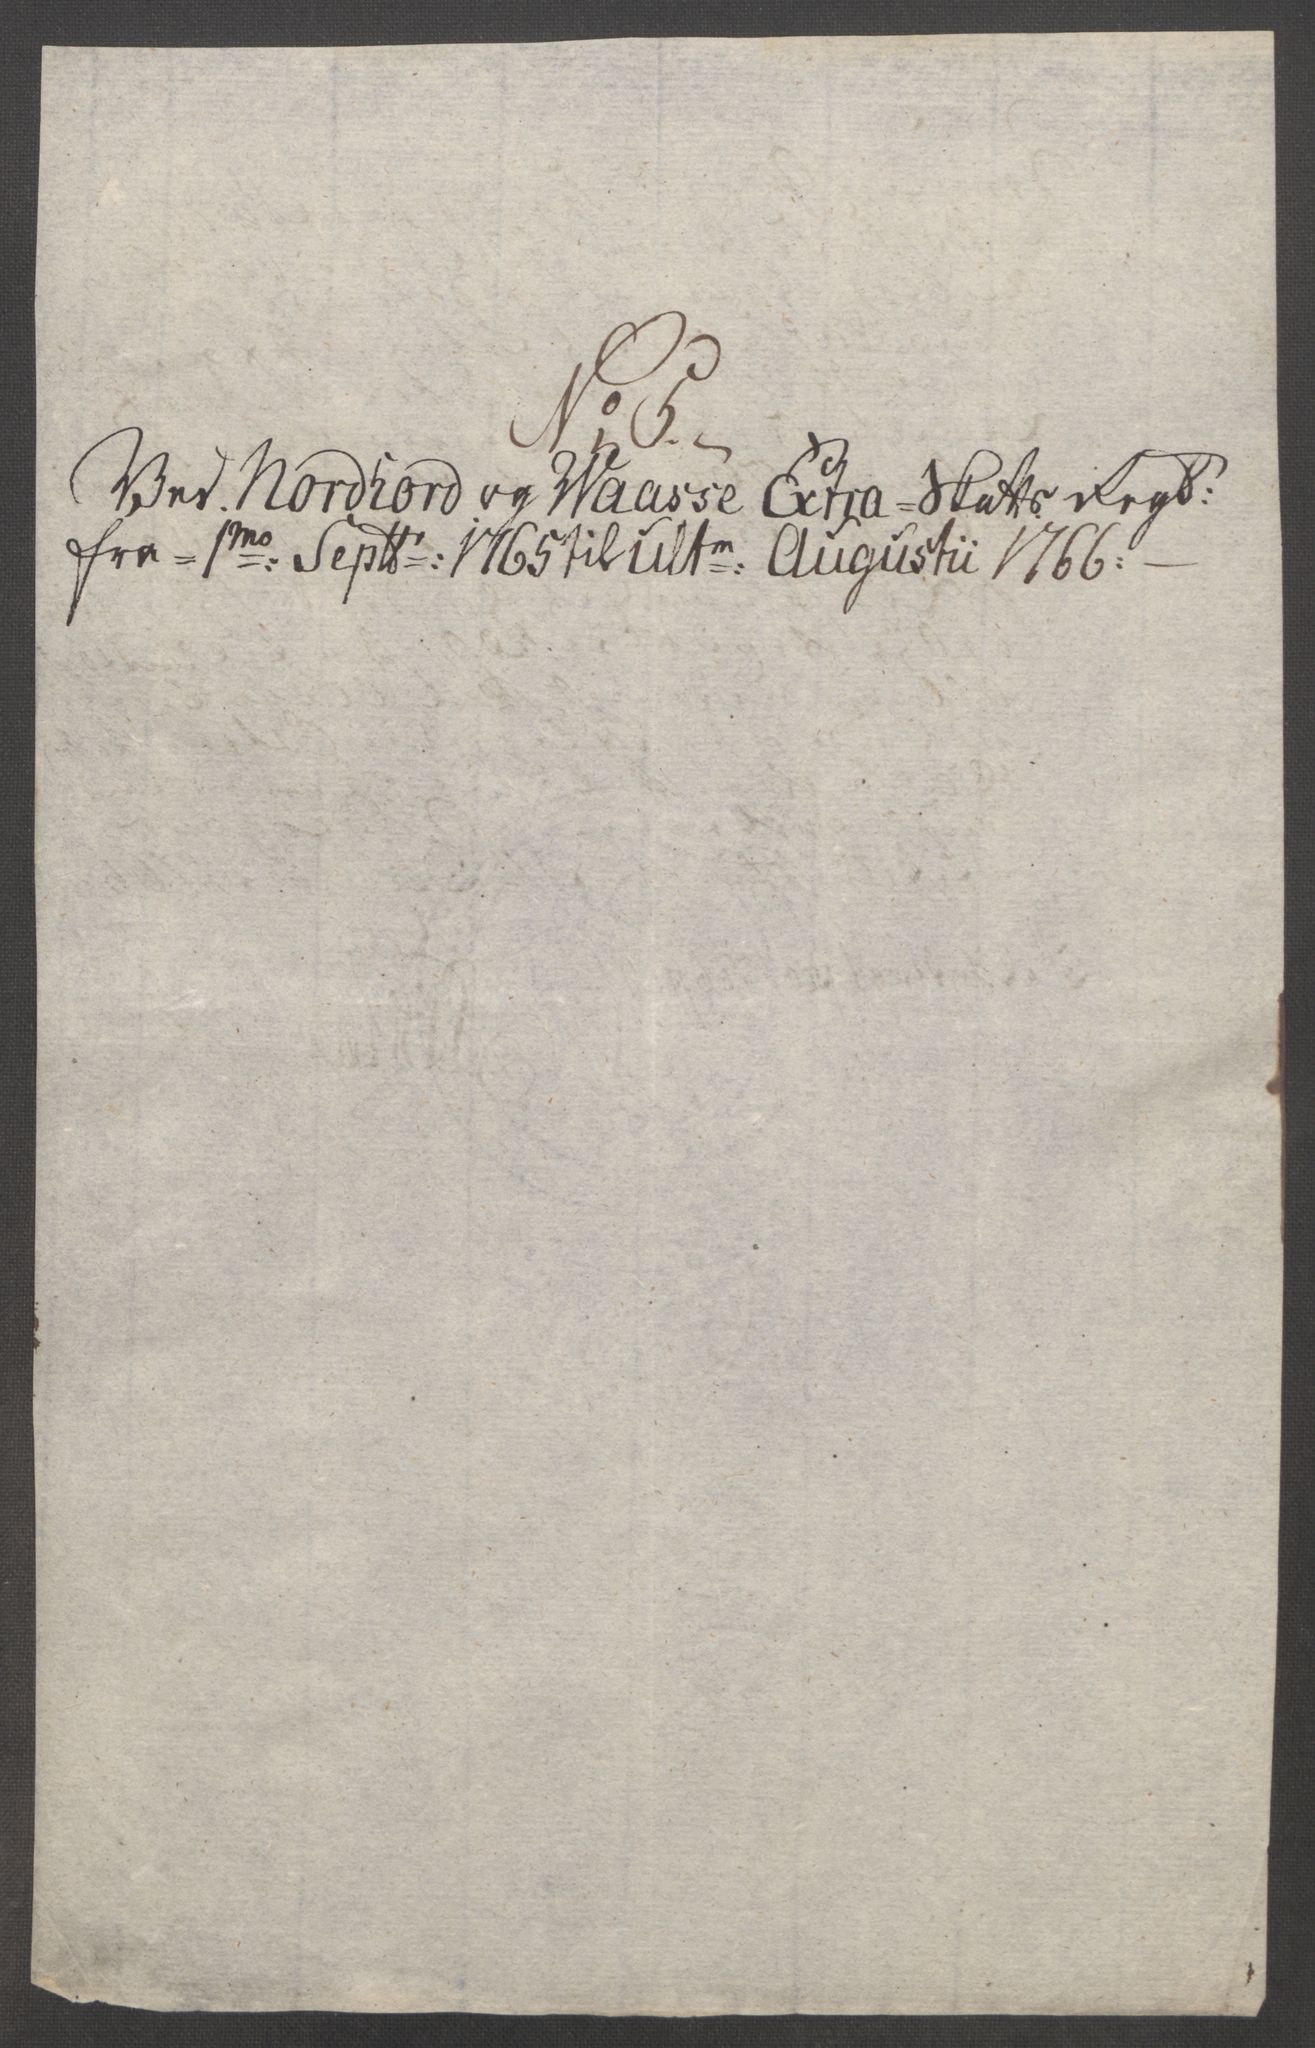 No 5.
Ved. Nordhord og Waasse Extra=Skatts Regb:
fra = 1mo: Septbr: 1765 til ultm: Augustii 1766: —